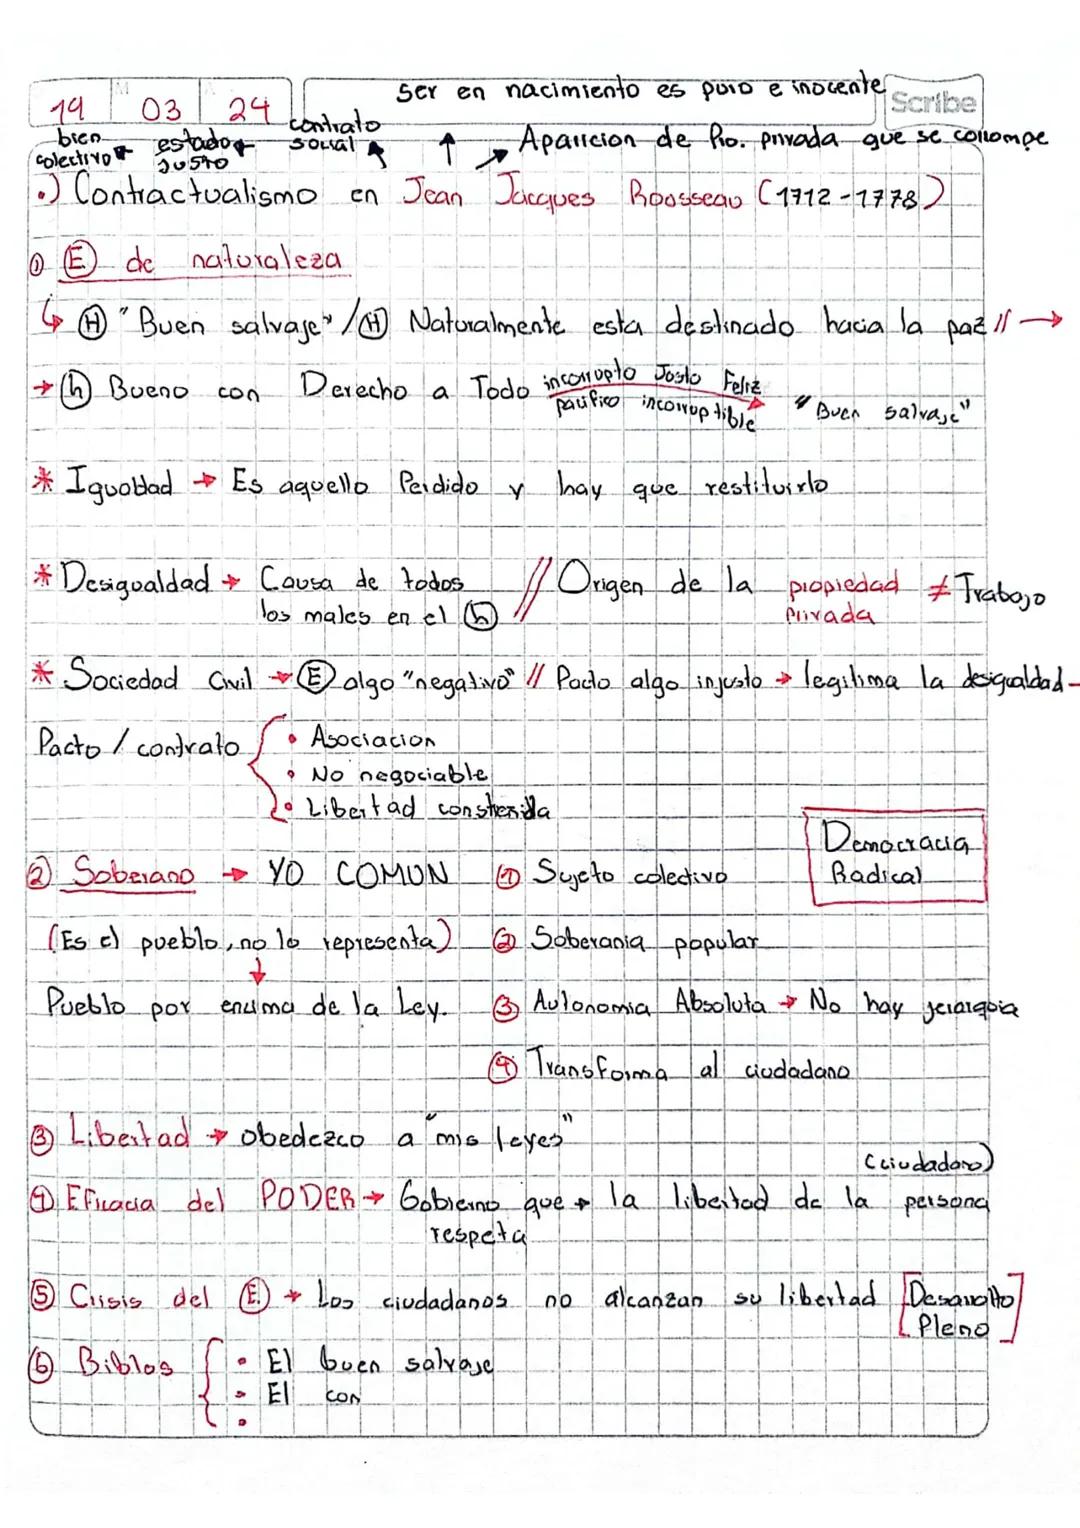 ser en nacimiento es puro e inocente
Scribe
19 03 24
contrato social
bien colectivo
estado justo
Aparicion de Pro. privada que se corrompe
•) Contractualismo en Jean Jacques Roosseau (1712-1778)
① Ⓔ de naturaleza
↳ Ⓗ "Buen salvaje" / Ⓗ Naturalmente esta destinado hacia la paz // →
→ ⓗ Bueno con Derecho a Todo incorrupto Justo Feliz
pacifico incorruptible → "Buen salvaje"
* Igualdad → Es aquello Perdido y hay que restituirlo
* Desigualdad → Causa de todos // Origen de la propiedad ≠ Trabajo
los males en el ⓗ Privada
* Sociedad Civil → Ⓔ algo "negativo" // Pacto algo injusto → legitima la desigualdad -
Pacto / contrato { • Asociacion
• No negociable
• Libertad
Democracia
Radical
② Soberano → YO COMUN ① Sujeto colectivo
(Es el pueblo, no lo representa) ② Soberania popular
↓
Pueblo por encima de la Ley. ③ Autonomia Absoluta → No hay jerarquia
④ Transforma al ciudadano
③ Libertad → obedezco a "mis leyes"
(ciudadano)
④ Eficacia del PODER → Gobierno que → la libertad de la persona
respeta
⑤ Crisis del Ⓔ. → Los ciudadanos no alcanzan su libertad [Desarrollo
Pleno]
⑥ Biblos { • El buen salvaje
• El con
•